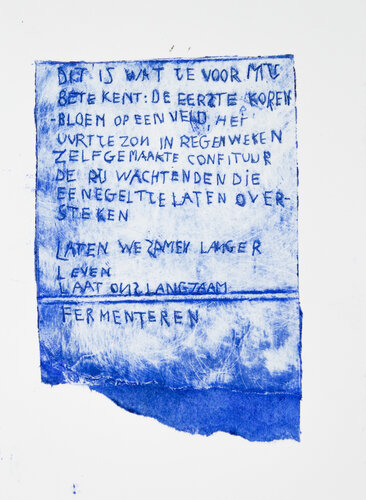 DIT IS WAT JE VOOR MIJ
BETEKENT: DE EERSTE KOREN
-BLOEM OP EEN VELD, HET
UURTJE ZON IN REGENWEKEN
ZELFGEMAAKTE CONFITUUR
DE RIJ WACHTENDEN DIE
EEN EGELTJE LATEN OVER-
STEKEN
LATEN WE SAMEN LANGER
LEVEN
LAAT ONS LANGZAAM
FERMENTEREN